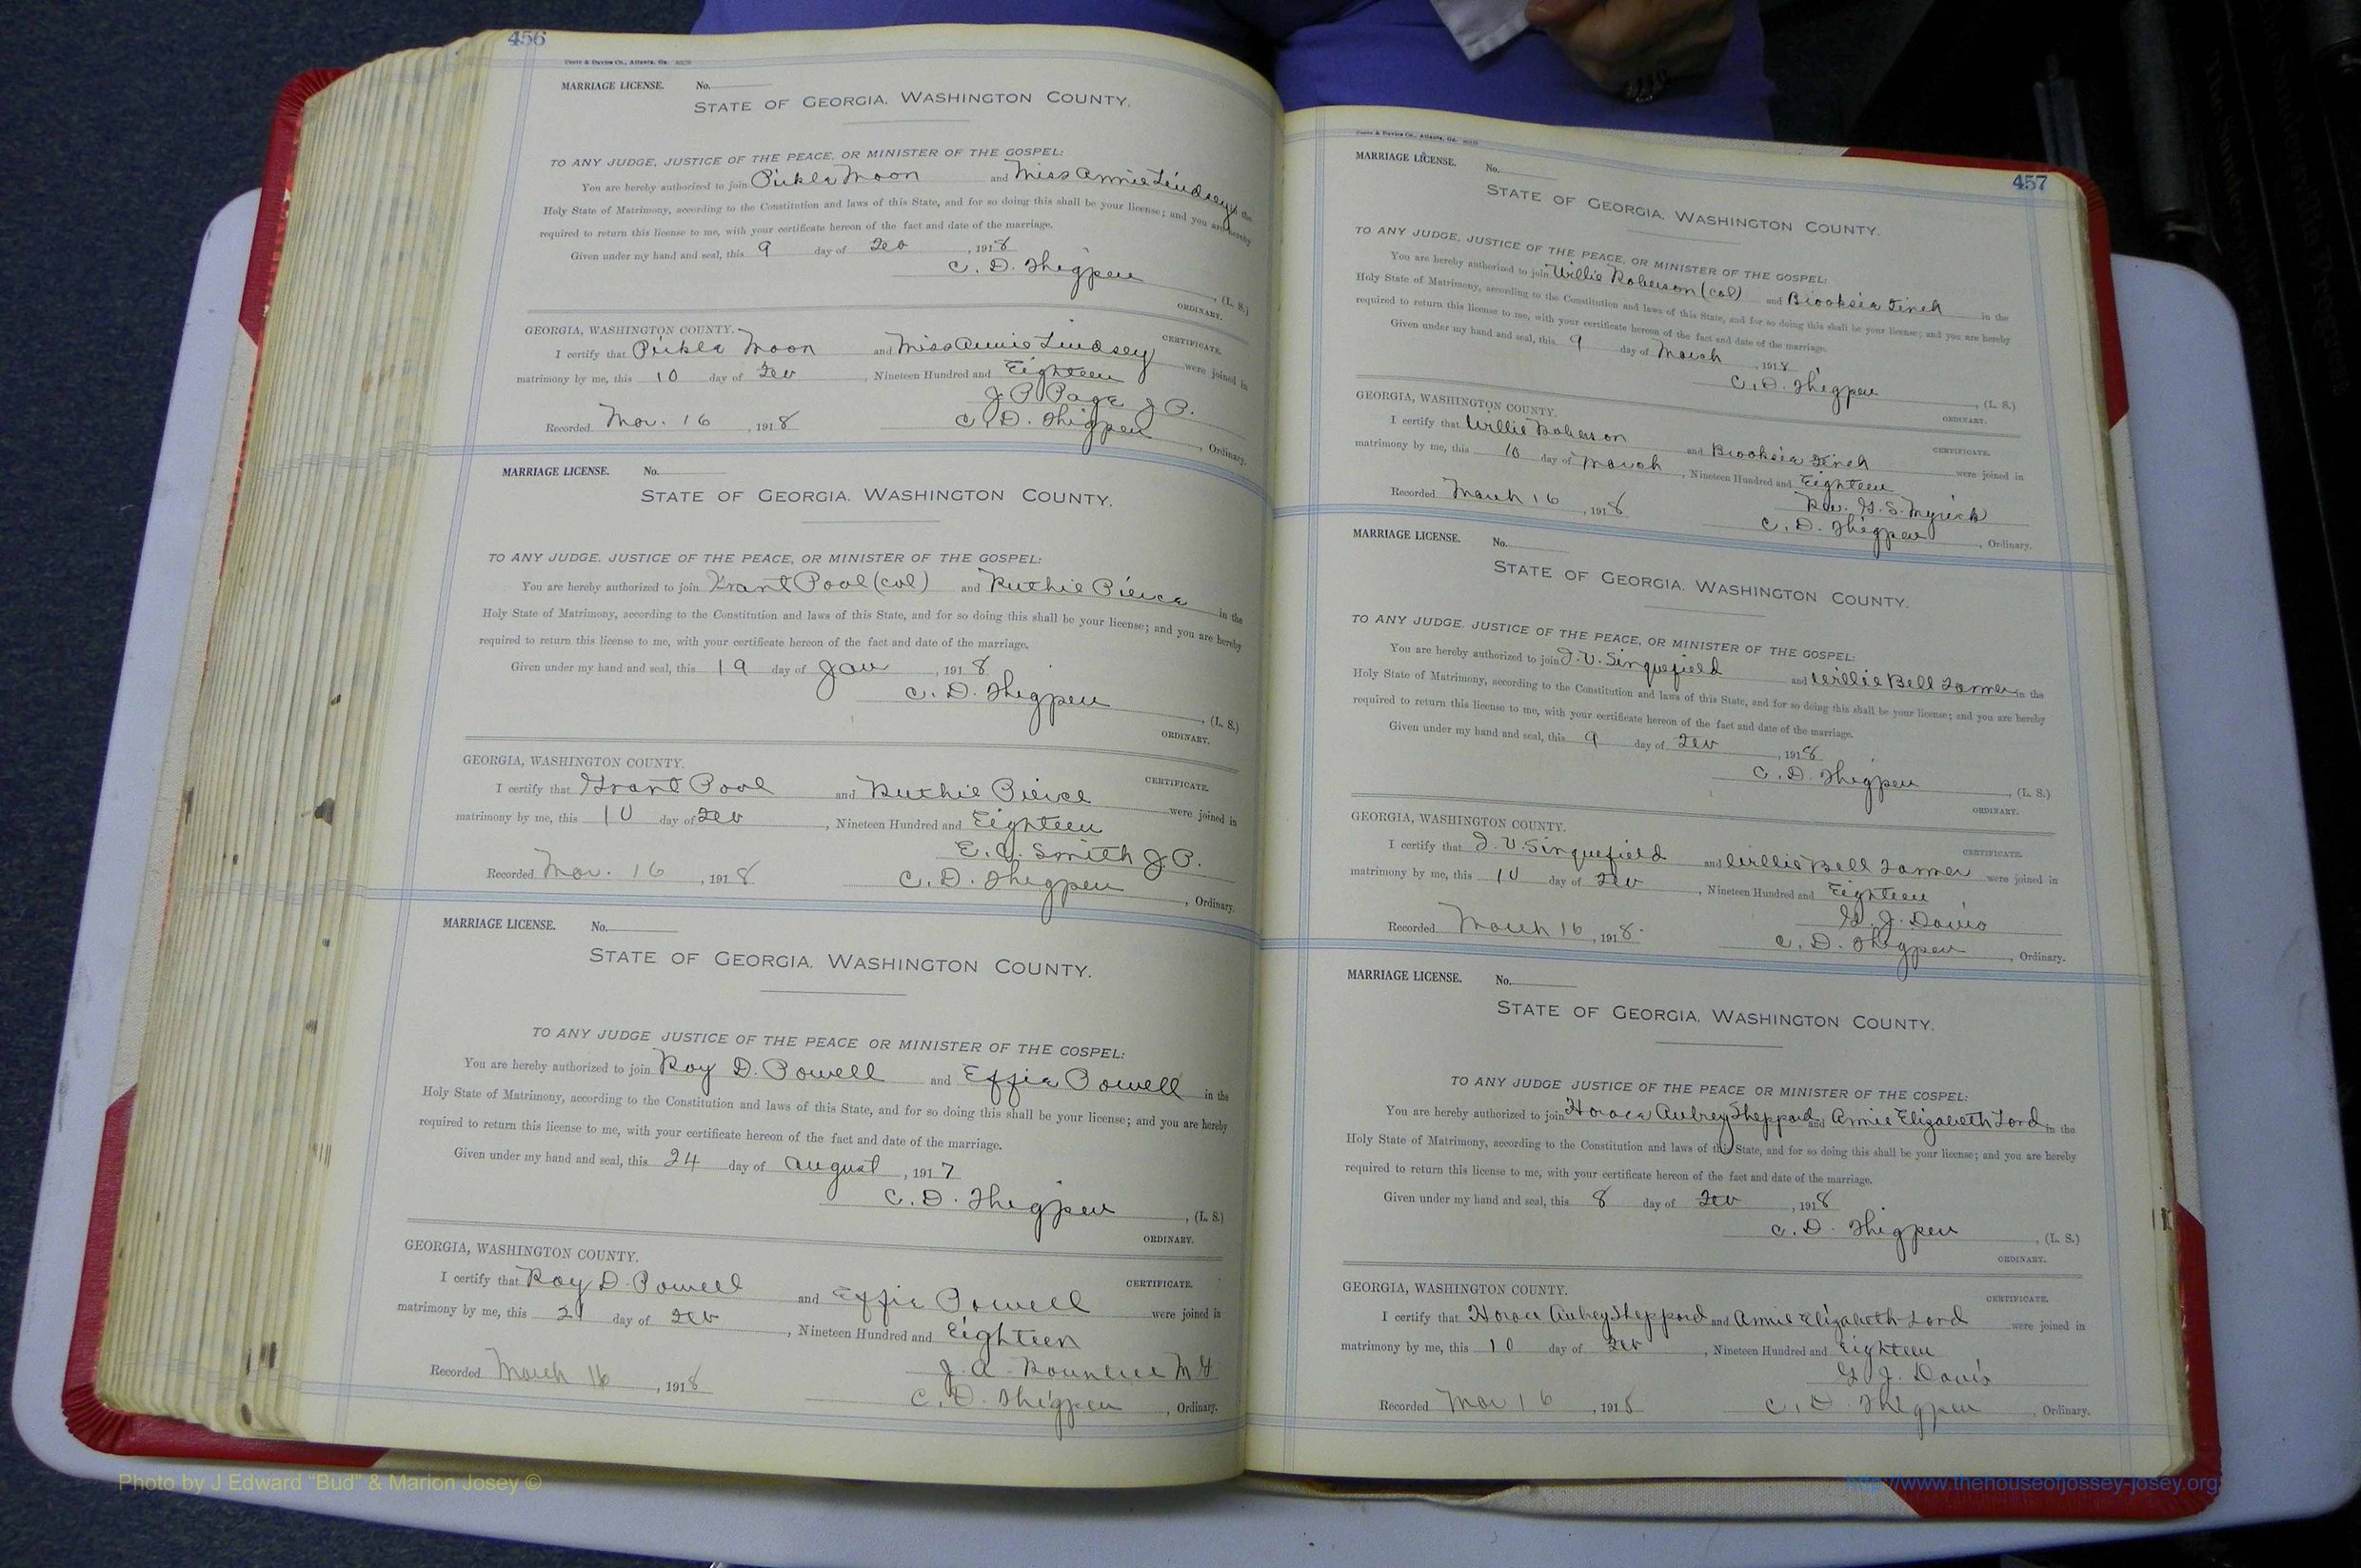 456
Foote & Davies Co., Atlanta, Ga.
MARRIAGE LICENSE. No.
STATE OF GEORGIA, WASHINGTON COUNTY.
TO ANY JUDGE, JUSTICE OF THE PEACE, OR MINISTER OF THE GOSPEL:
You are hereby authorized to join Pickla Moon and Miss Annie Lindsey in the
Holy State of Matrimony, according to the Constitution and laws of this State, and for so doing this shall be your license; and you are hereby
required to return this license to me, with your certificate hereon of the fact and date of the marriage.
Given under my hand and seal, this 9 day of Feb, 1918
C. D. Thigpen, (L. S.)
ORDINARY.
GEORGIA, WASHINGTON COUNTY.
CERTIFICATE.
I certify that Pickla Moon and Miss Annie Lindsey were joined in
matrimony by me, this 10 day of Feb, Nineteen Hundred and Eighteen
J P Page J P.
Recorded Mar. 16, 1918 C. D. Thigpen, Ordinary.
MARRIAGE LICENSE. No.
STATE OF GEORGIA, WASHINGTON COUNTY.
TO ANY JUDGE, JUSTICE OF THE PEACE, OR MINISTER OF THE GOSPEL:
You are hereby authorized to join Grant Pool (col) and Ruthie Pierce in the
Holy State of Matrimony, according to the Constitution and laws of this State, and for so doing this shall be your license; and you are hereby
required to return this license to me, with your certificate hereon of the fact and date of the marriage.
Given under my hand and seal, this 19 day of Jan, 1918
C. D. Thigpen, (L. S.)
ORDINARY.
GEORGIA, WASHINGTON COUNTY.
CERTIFICATE.
I certify that Grant Pool and Ruthie Pierce were joined in
matrimony by me, this 10 day of Feb, Nineteen Hundred and Eighteen
Smith J.P.
Recorded Mar. 16, 1918 C. D. Thigpen, Ordinary.
MARRIAGE LICENSE. No.
STATE OF GEORGIA, WASHINGTON COUNTY.
TO ANY JUDGE JUSTICE OF THE PEACE OR MINISTER OF THE GOSPEL:
You are hereby authorized to join Roy D. Powell and Effie Powell in the
Holy State of Matrimony, according to the Constitution and laws of this State, and for so doing this shall be your license; and you are hereby
required to return this license to me, with your certificate hereon of the fact and date of the marriage.
Given under my hand and seal, this 24 day of August, 1917
C. D. Thigpen, (L. S.)
ORDINARY.
GEORGIA, WASHINGTON COUNTY.
CERTIFICATE.
I certify that Roy D. Powell and Effie Powell were joined in
matrimony by me, this 21 day of Feb, Nineteen Hundred and Eighteen
J. A. Rountree M G
Recorded March 16, 1918 C. D. Thigpen, Ordinary.
457
Foote & Davies Co., Atlanta, Ga.
MARRIAGE LICENSE. No.
STATE OF GEORGIA, WASHINGTON COUNTY.
TO ANY JUDGE, JUSTICE OF THE PEACE, OR MINISTER OF THE GOSPEL:
You are hereby authorized to join Willie Roberson (col) and Brooksia Finch in the
Holy State of Matrimony, according to the Constitution and laws of this State, and for so doing this shall be your license; and you are hereby
required to return this license to me, with your certificate hereon of the fact and date of the marriage.
Given under my hand and seal, this 9 day of March, 1918
C. D. Thigpen, (L. S.)
ORDINARY.
GEORGIA, WASHINGTON COUNTY.
CERTIFICATE.
I certify that Willie Roberson and Brooksia Finch were joined in
matrimony by me, this 10 day of March, Nineteen Hundred and Eighteen
Rev. G. S. Myrick
Recorded March 16, 1918 C. D. Thigpen, Ordinary.
MARRIAGE LICENSE. No.
STATE OF GEORGIA, WASHINGTON COUNTY.
TO ANY JUDGE, JUSTICE OF THE PEACE, OR MINISTER OF THE GOSPEL:
You are hereby authorized to join Sinquefield and Willie Bell Tanner in the
Holy State of Matrimony, according to the Constitution and laws of this State, and for so doing this shall be your license; and you are hereby
required to return this license to me, with your certificate hereon of the fact and date of the marriage.
Given under my hand and seal, this 9 day of Feb, 1918
C. D. Thigpen, (L. S.)
ORDINARY.
GEORGIA, WASHINGTON COUNTY.
CERTIFICATE.
I certify that Sinquefield and Willie Bell Tanner were joined in
matrimony by me, this 10 day of Feb, Nineteen Hundred and Eighteen
G. J. Davis
Recorded March 16, 1918. C. D. Thigpen, Ordinary.
MARRIAGE LICENSE. No.
STATE OF GEORGIA, WASHINGTON COUNTY.
TO ANY JUDGE JUSTICE OF THE PEACE OR MINISTER OF THE GOSPEL:
You are hereby authorized to join Horace Aubrey Sheppard and Annie Elizabeth Lord in the
Holy State of Matrimony, according to the Constitution and laws of this State, and for so doing this shall be your license; and you are hereby
required to return this license to me, with your certificate hereon of the fact and date of the marriage.
Given under my hand and seal, this 8 day of Feb, 1918
C. D. Thigpen, (L. S.)
ORDINARY.
GEORGIA, WASHINGTON COUNTY.
CERTIFICATE.
I certify that Horace Aubrey Sheppard and Annie Elizabeth Lord were joined in
matrimony by me, this 10 day of Feb, Nineteen Hundred and Eighteen
G. J. Davis
Recorded Mar 16, 1918 C. D. Thigpen, Ordinary.
Photo by J Edward "Bud" & Marion Josey ©
http://www.thehouseofjossey-josey.org